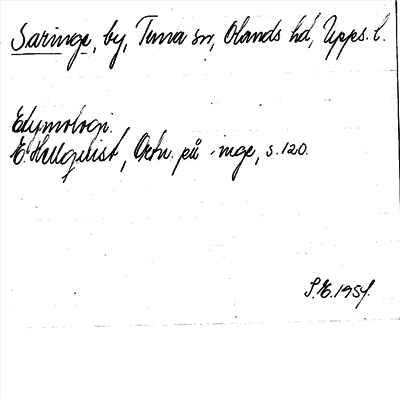 Saringe, by, Tuna sn, Olands hd, Upps. l.
Etymologi.
E. Hellquist, Ortn. på -inge, s. 120.
S.E. 1954.